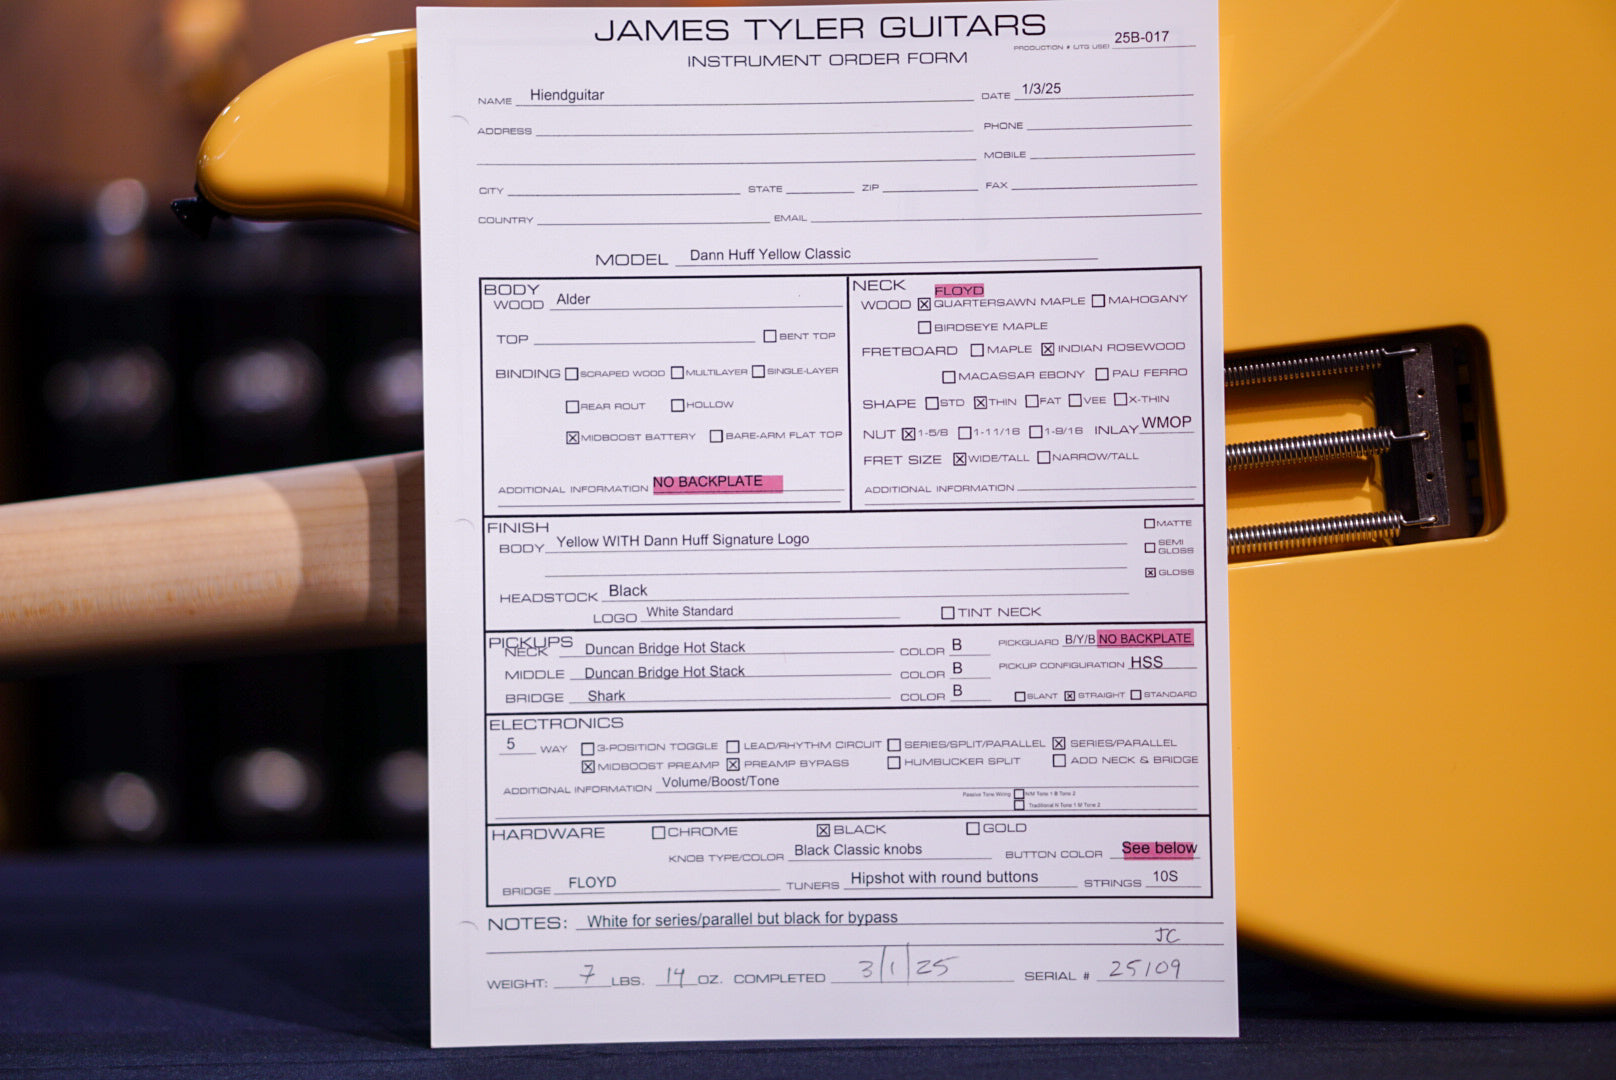 JAMES TYLER GUITARS
PRODUCTION # (JTG USE) 25B-017
INSTRUMENT ORDER FORM
NAME Hiendguitar DATE 1/3/25
ADDRESS PHONE
MOBILE
CITY STATE ZIP FAX
COUNTRY EMAIL
MODEL Dann Huff Yellow Classic
BODY
WOOD Alder
TOP BENT TOP
BINDING SCRAPED WOOD MULTILAYER SINGLE-LAYER
REAR ROUT HOLLOW
MIDBOOST BATTERY BARE-ARM FLAT TOP
ADDITIONAL INFORMATION NO BACKPLATE
NECK FLOYD
WOOD QUARTERSAWN MAPLE MAHOGANY
BIRDSEYE MAPLE
FRETBOARD MAPLE INDIAN ROSEWOOD
MACASSAR EBONY PAU FERRO
SHAPE STD THIN FAT VEE X-THIN
NUT 1-5/8 1-11/16 1-9/16 INLAY WMOP
FRET SIZE WIDE/TALL NARROW/TALL
ADDITIONAL INFORMATION
FINISH
BODY Yellow WITH Dann Huff Signature Logo
MATTE
SEMI GLOSS
GLOSS
HEADSTOCK Black
LOGO White Standard TINT NECK
PICKUPS
NECK Duncan Bridge Hot Stack COLOR B PICKGUARD B/Y/B NO BACKPLATE
MIDDLE Duncan Bridge Hot Stack COLOR B PICKUP CONFIGURATION HSS
BRIDGE Shark COLOR B SLANT STRAIGHT STANDARD
ELECTRONICS
5 WAY 3-POSITION TOGGLE LEAD/RHYTHM CIRCUIT SERIES/SPLIT/PARALLEL SERIES/PARALLEL
MIDBOOST PREAMP PREAMP BYPASS HUMBUCKER SPLIT ADD NECK & BRIDGE
ADDITIONAL INFORMATION Volume/Boost/Tone
Passive Tone Wiring N/M Tone 1 B Tone 2
Traditional N Tone 1 M Tone 2
HARDWARE CHROME BLACK GOLD
KNOB TYPE/COLOR Black Classic knobs BUTTON COLOR See below
BRIDGE FLOYD TUNERS Hipshot with round buttons STRINGS 10S
NOTES: White for series/parallel but black for bypass
JC
WEIGHT: 7 LBS. 14 OZ. COMPLETED 3/1/25 SERIAL # 25109